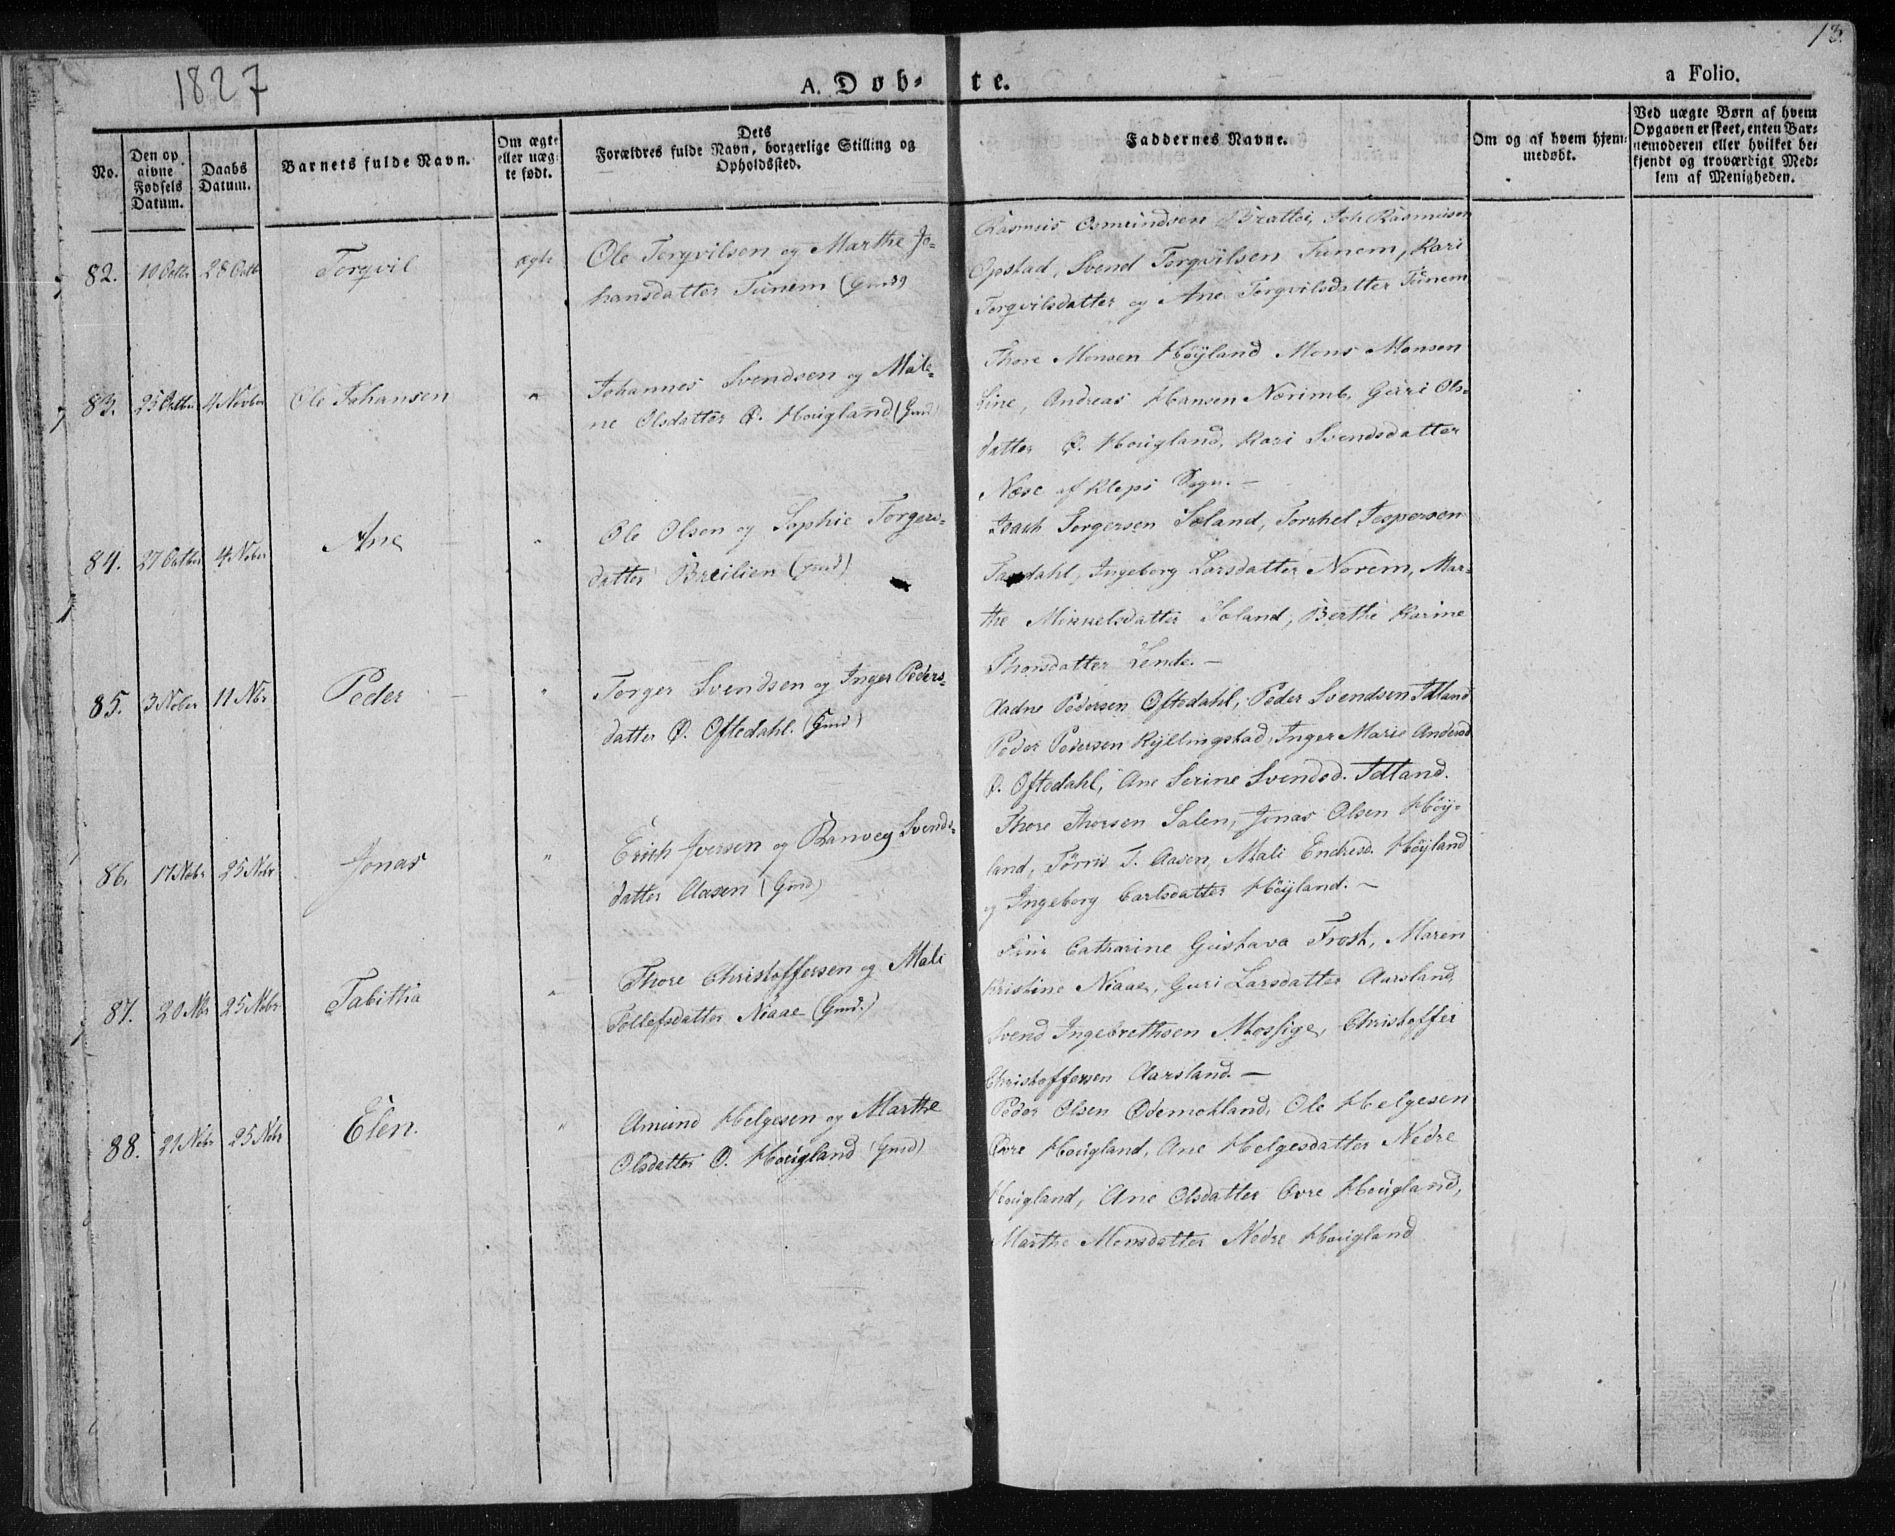 13.
1827
A. Døb-
te.
a Folio.
No.
Den op
givne
Fødsels
Datum.
Daabs
Datum.
Barnets fulde Navn.
Om ægte
eller uæg-
te født.
Dets
Forældres fulde Navn, borgerlige Stilling og
Opholdssted.
Faddernes Navne.
Om og af hvem hjem-
medøbt.
Ved uægte Børn af hvem
Opgaven er skeet, enten Bar-
nemoderen eller hvilket be-
kjendt og troværdigt Med-
lem af Menigheden.
82. 10 Octbr 28 Octb Torqvil ægte
Ole Torqvilsen og Marthe Jo-
hansdatter Tunem (Gmd)
Rasmus Osmundsen Brattei, Joh. Rasmusen
Opstad, Svend Torqvilsen Tunem, Kari
Torqvilsdatter og Ane Torqvilsdatter Tunem
83. 25 Octbr 4 Novber Ole Johansen "
Johannes Svendsen og Male-
ne Olsdatter Ø. Hougland (Gmd)
Thore Monsen Høyland Mons Monsen
Line, Andreas Hansen Nærimb, Guri Ols-
datter Ø. Hougland, Kari Svendsdatter
Næse af Kleps Sogn. —
84. 27 Octber 4 Nober Ane "
Ole Olsen og Sophie Torgers-
datter Breilien (Gmd)
Isach Torgersen Soland, Torchel Jespersen
Ingeborg Larsdatter Norem, Mar-
the Mikkelsdatter Soland, Berthe Karine
Thorsdatter Lende. —
85. 3 Nober 11 Nbr Peder "
Torger Svendsen og Inger Peders-
datter Ø. Oftedahl. (Gmd)
Aadne Pedersen Oftedahl, Peder Svendsen Idland
Peder Pedersen Kyllingstad, Inger Marie Andersd
Ø. Oftedahl, Ane Serine Svendsd. Idland.
86. 17 Nobr 25 Nobr Jonas "
Erich Iversen og Ranveg Svends-
datter Aasen (Gmd)
Thore Thorsen Salen, Jonas Olsen Høy-
land, Tørris T. Aasen, Mali Endresd. Høyland
og Ingeborg Carlsdatter Høyland. —
87. 20 Nbr 25 Nobr Tabitha "
Thore Christoffersen og Mali
Tollefsdatter Niaae (Gmd.)
Catharine Gustava Frost, Maren
Kristine Niaae, Guri Larsdatter Aarsland,
Svend Ingebrethsen Mossige, Christoffer
Christoffersen Aarsland. —
88. 21 Nobr 25 Nobr Elen. "
Amund Helgesen og Marthe
Olsdatter Ø. Hougland (Gmd)
Peder Olsen Ødemotland, Ole Helgesen
Øvre Hougland, Ane Helgesdatter Nedre
Hougland, Ane Olsdatter Øvre Hougland,
Marthe Monsdatter Nedre Hougland